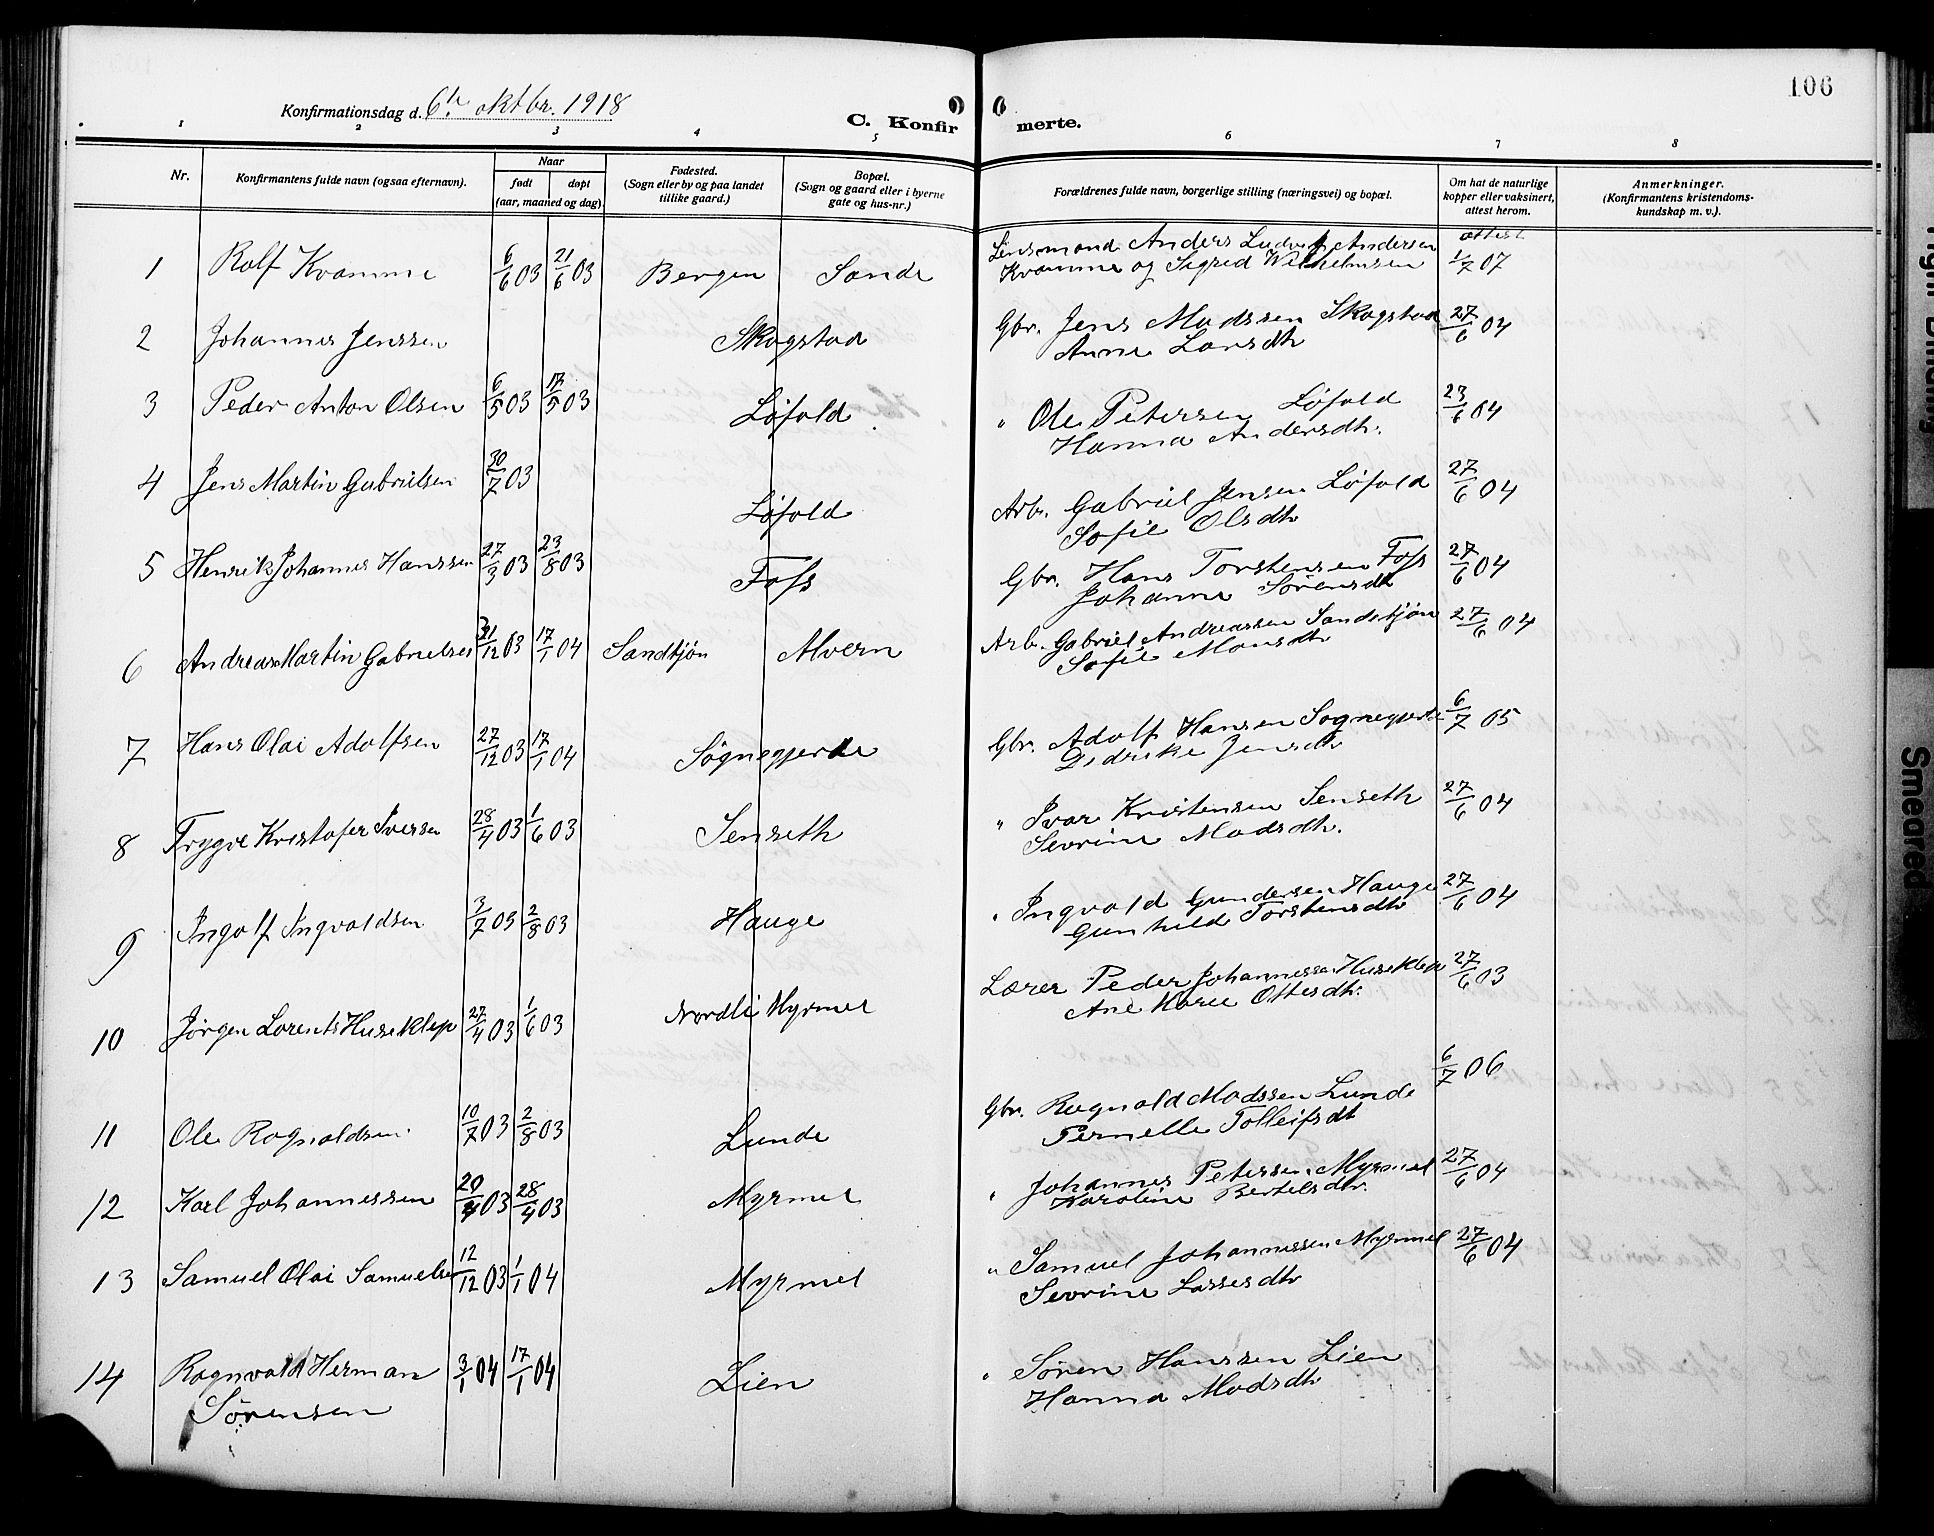 106
Konfirmationsdag d. 6te oktbr. 1918
C. Konfirmerte.
1 2 3 4 5 6 7 8
Nr. Konfirmantens fulde navn (ogsaa efternavn). Naar født døpt (aar, maaned og dag). Fødested. (Sogn eller by og paa landet tillike gaard.) Bopæl. (Sogn og gaard eller i byerne gate og hus-nr.) Forældrenes fulde navn, borgerlige stilling (næringsvei) og bopæl. Om hat de naturlige kopper eller vaksinert, attest herom. Anmerkninger. (Konfirmantens kristendoms-kundskap m. v.).
1 Rolf Kvamme 6/6 03 21/6 03 Bergen Sande Lensmand Anders Ludvig Andersen attest
Kvamme og Sigrid Wilhelmsen 1/7 07
2 Johannes Jenssen Skogstad Gbr. Jens Madssen Skogstad 27/6 04
Anne Larsdtr
3 Peder Anton Olsen 6/5 03 17/5 03 Løfold " Ole Petersen Løfold 23/6 04
Hanna Andersdtr.
4 Jens Martin Gabrielsen 30/7 03 Løfold Arb. Gabriel Jensen Løfold 27/6 04
Sofie Olsdtr
5 Henrik Johannes Hanssen 27/3 03 23/8 03 Foss Gbr. Hans Torstensen Foss 27/6 04
Johanne Sørensdtr
6 Andreas Martin Gabrielsen 31/12 03 17/1 04 Sandtjøn Alvern Arb. Gabriel Andreassen Sandtjøn 27/6 04
Sofie Monsdtr
7 Hans Olai Adolfsen 27/12 03 17/1 04 Søgnegjerde Gbr. Adolf Hansen Sognegjerde 6/7 05
Didrike Jensdtr
8 Trygve Kristofer Iversen 28/4 03 1/6 03 Senseth " Ivar Kristensen Senseth 27/6 04
Sevrine Madsdtr.
9 Ingolf Ingvaldsen 3/7 03 2/8 03 Hauge " Ingvald Gundersen Hauge 27/6 04
Gunhild Torstensdtr
10 Jørgen Lorents Huseklep 27/4 03 1/6 03 Nordli Myrmel Lærer Peder Johannessen Huseklep 27/6 03
Ane Marie Ottesdtr.
11 Ole Ragnaldsen 10/7 03 2/8 03 Lunde Gbr. Ragnald Madssen Lunde 6/7 06
Pernelle Tolleifsdt
12 Karl Johannessen 20/4 03 28/4 03 Myrmel " Johannes Petersen Myrmel 27/6 04
Karoline Bertelsdtr.
13 Samuel Olai Samuelsen 12/12 03 1/1 04 Myrmel " Samuel Johannessen Myrmel 27/6 04
Sevrine Lassesdtr
14 Ragnvald Herman 3/1 04 17/1 04 Lien " Søren Hanssen Lien
Sørensen Hanna Madsdtr
Tight Binding
Smeared